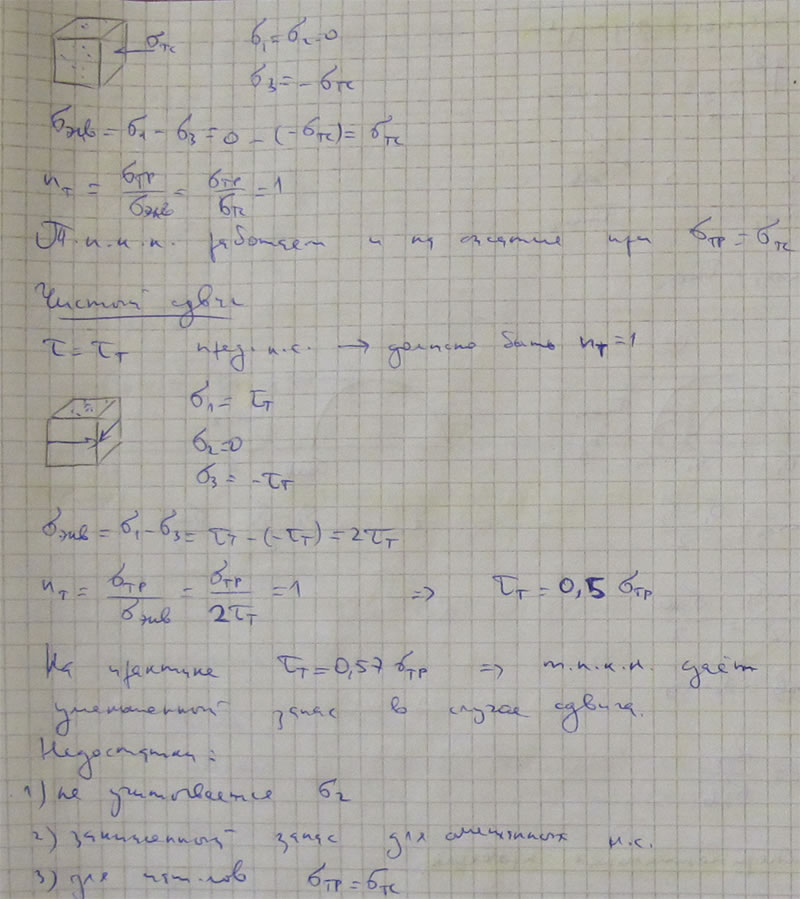 σтс σ₁ = σ₂ = 0
σ₃ = -σтс
σэкв = σ₁ - σ₃ = 0 - (-σтс) = σтс
nт = σтр/σэкв = σтр/σтс = 1
Т.п.к.н. работает и на сжатие при σтр = σтс
Чистый сдвиг
τ = τт пред. н.с. → должно быть nт = 1
σ₁ = τт
σ₂ = 0
σ₃ = -τт
σэкв = σ₁ - σ₃ = τт - (-τт) = 2τт
nт = σтр/σэкв = σтр/2τт = 1 => τт = 0,5 σтр
На практике τт = 0,57 σтр => т.п.к.н. даёт
уменьшенный запас в случае сдвига.
Недостатки:
1) не учитывается σ₂
2) заниженный запас для смешанных н.с.
3) для σтр = σтс